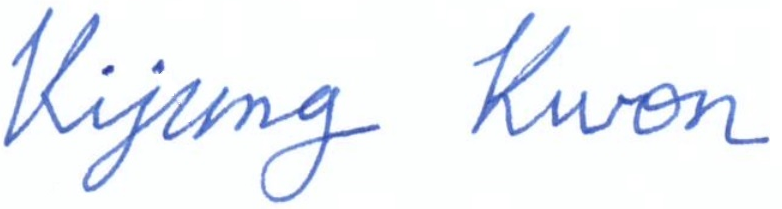 Kijung Kwon